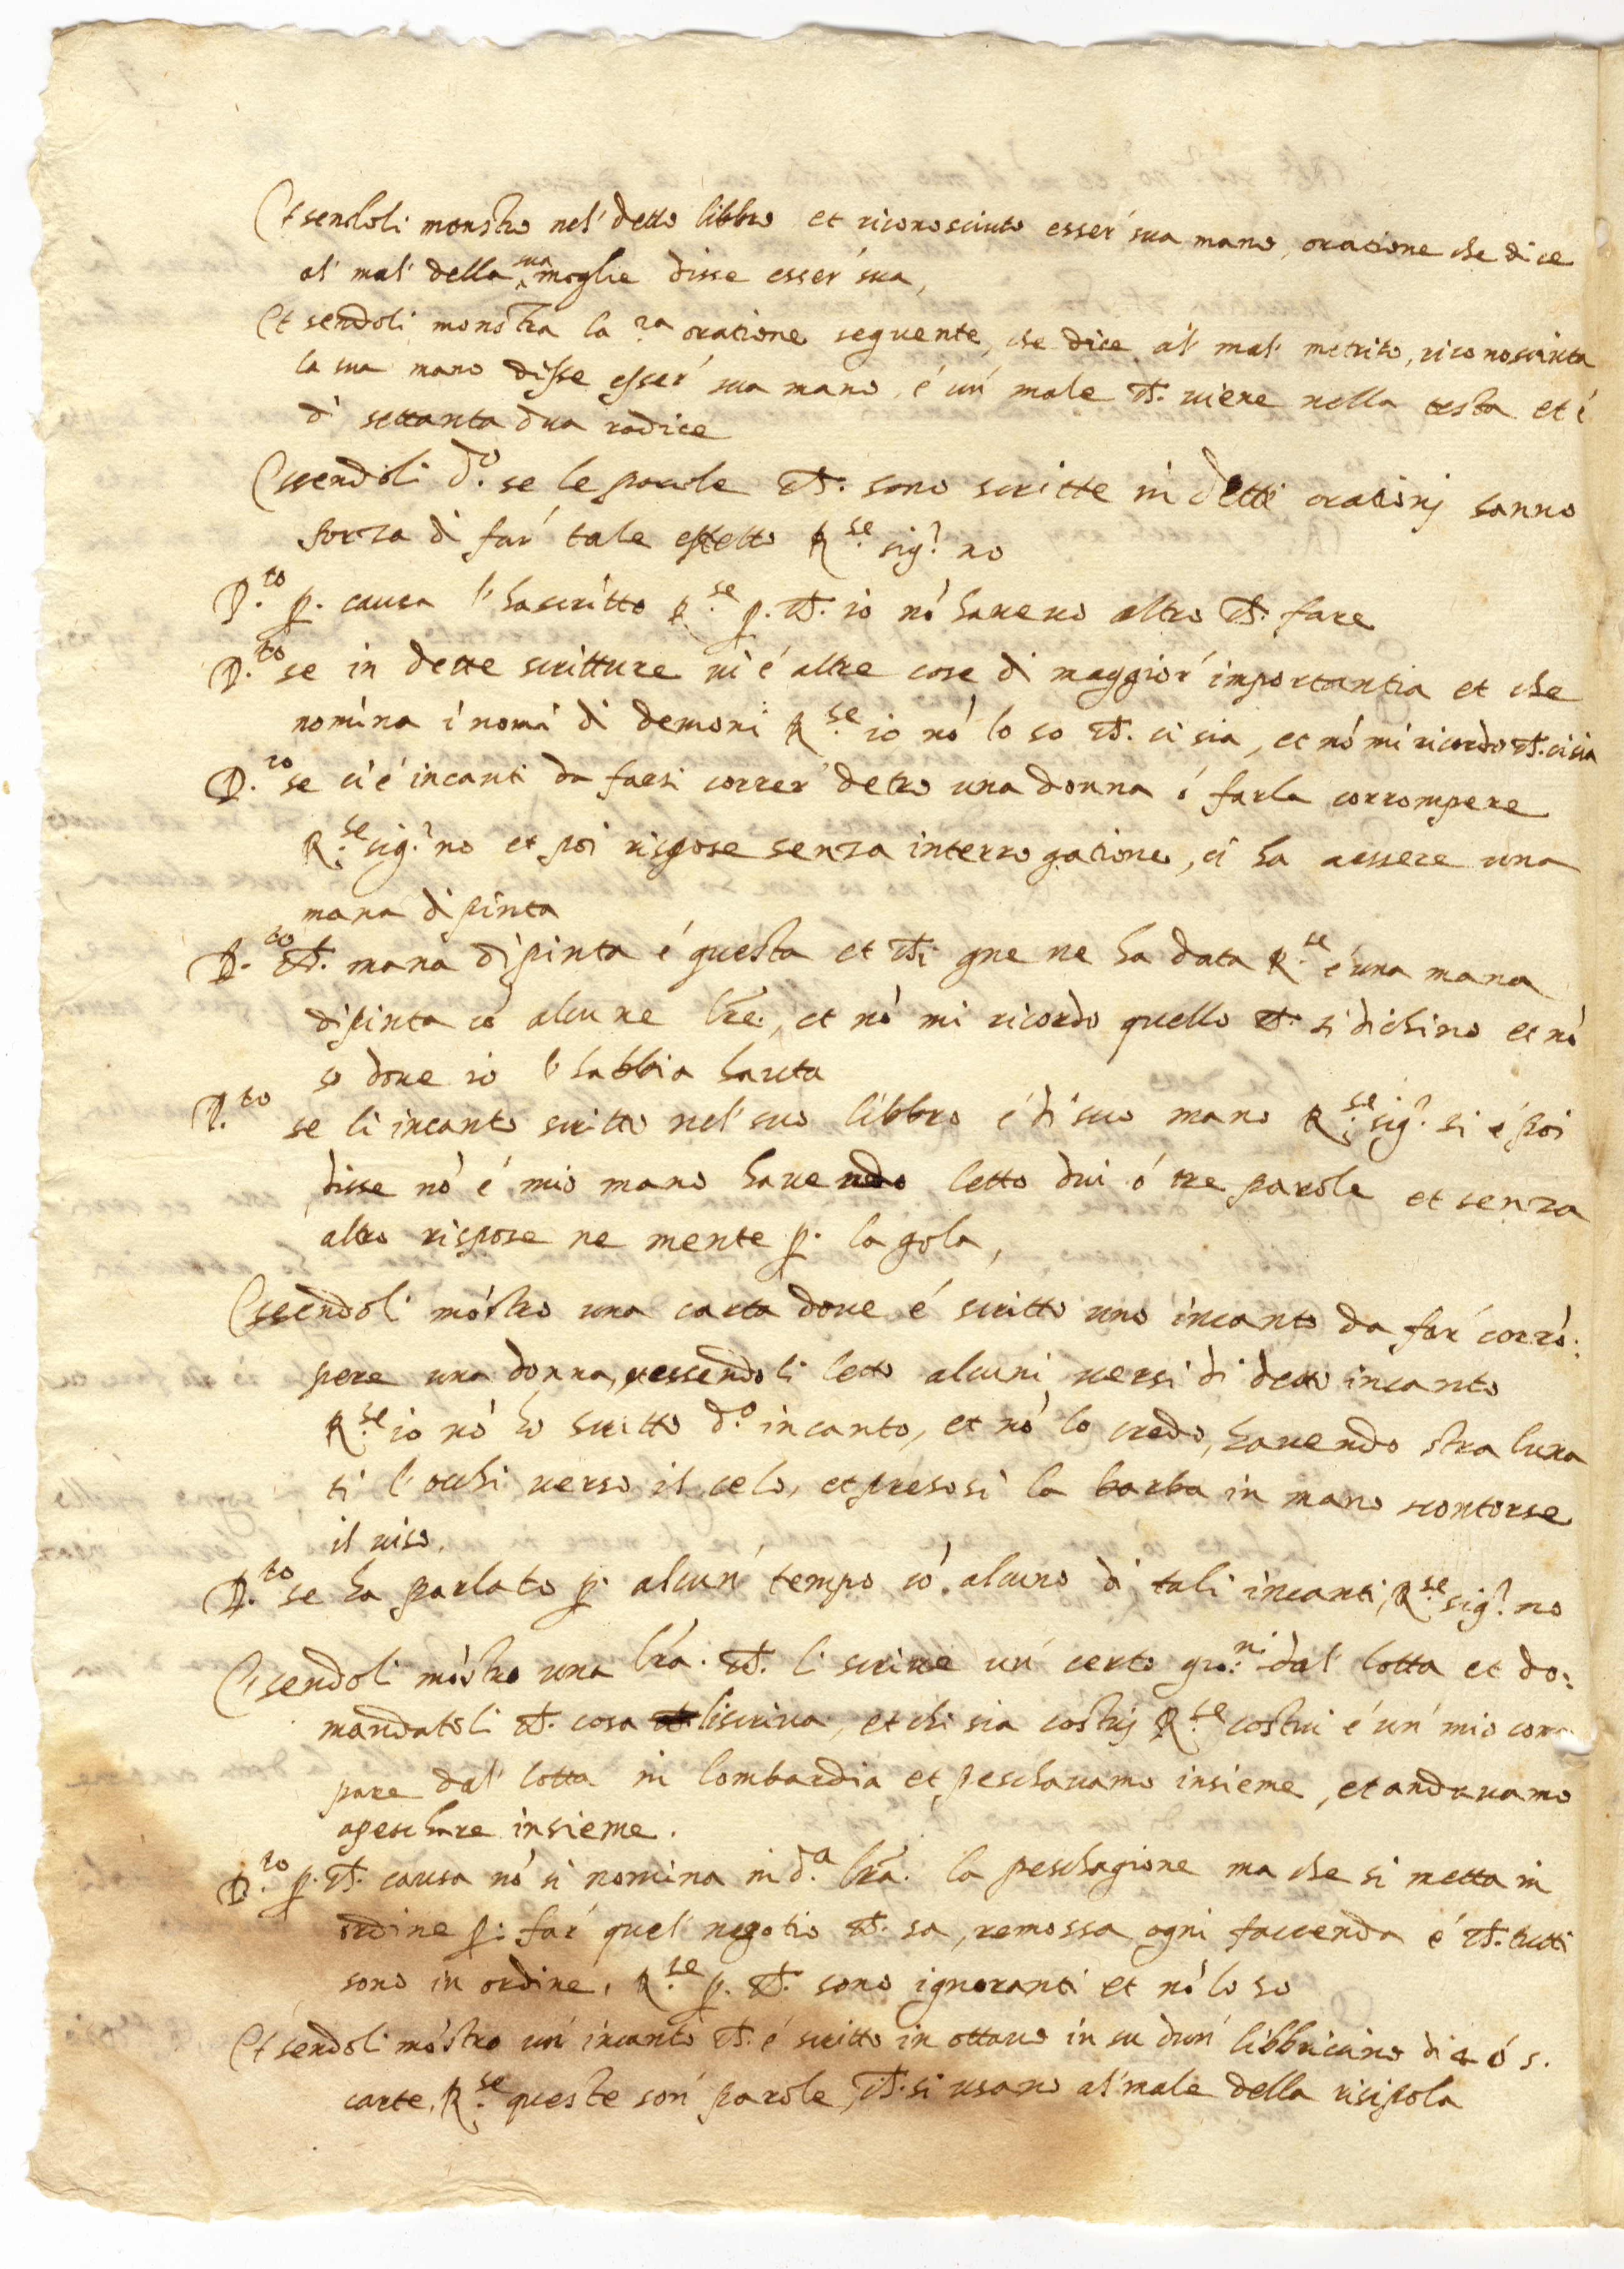 Essendoli monstro nel' detto libbro et riconosciuto esser' sua mano, oratione che dice
al' mal' della sua moglie disse esser' sua,
Essendoli monstra la 2a oratione seguente, che dice al' mal' metrito, riconosciuta
la sua mano disse esser' sua mano, é un' male ch. viene nella testa et é
di settanta dua radice
Essendoli d.o se le parole ch. sono scritte in dette orationj hanno
forza di far' tale effetto R.se sig.r no
D.to p. causa l'ha scritto R.se p. ch. io nó havevo altro ch. fare
D.to se in dette scritture vi é altre cose di maggior' importantia et che
nomina i nomi di demoni R.se io nó lo so ch. ci sia, et nó mi ricordo ch. ci sia
D.to se ci é incanti da farsi correr' detro una donna ó farla corrompere
R.se sig.r no et poi rispose senza interrogatione, ci ha aessere una
mana dipinta
D.to ch. mana dipinta é questa et chi gne ne ha data R.se é una mana
dipinta có alcune lre., et nó mi ricordo quello ch. si dichino et nó
so dove io l'habbia hauta
D.to se li incanto scritto nel' suo libbro é di suo mano R.se sig.r si é poi
disse nó é mio mano havendo letto dui ó tre parole et senza
altro rispose ne mente p. la gola,
Essendoli móstro una carta dove é scritto uno incanto da far' corró:
pere una donna, essendoli letto alcuni versi di detto incanto
R.se io nó ho scritto d.o incanto, et nó lo credo, havendo stra luna
ti l'ochi verso il celo, et presosi la barba in mano scontorse
il viso.
D.to se ha parlato p. alcun' tempo có alcuno di tali incanti, R.se sig.r no
Essendoli móstro una lra. ch. li scrive un' certo gio.ni dal' lotta et do:
mandatoli ch. cosa li scriva, et chi sia costuj R.se costui é un' mio com
pare dal' lotta in lombardia et peschavamo insieme, et andavamo
apeschare insieme.
D.to p. ch. causa nó si nomina in d.a lra. la peschagione ma che si metta in
ordine p. far' quel' negotio ch. sa, remossa ogni faccenda é ch. tutti
sono in ordine, R.se p. ch. sono ignoranti et nó lo so
Essendoli móstro un' incanto ch. é scritto in ottavo in su dun' libbricino di 4 ó 5.
carte, R.se queste son' parole ch. si usano al' male della risipola